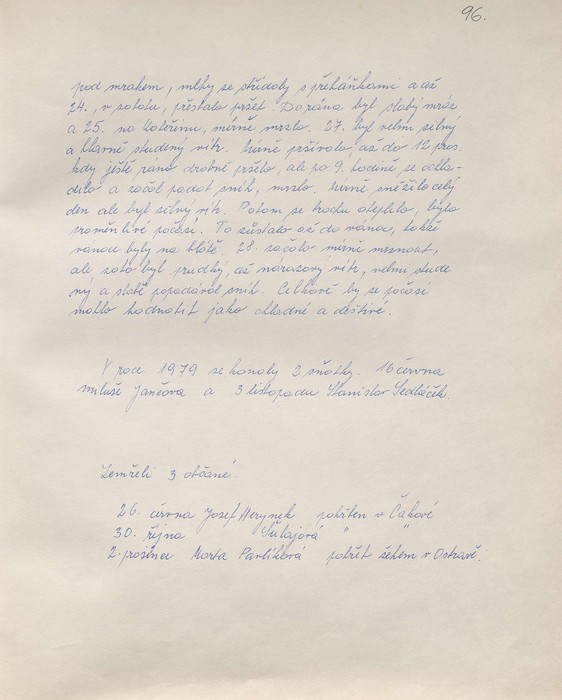 96.
pod mrakem, mlhy se střídaly s přeháňkami a až
24., v sobotu, přestalo pršet. Do rána byl slabý mráz
a 25. na Kateřinu, mírně mrzlo. 27. byl velmi silný
a hlavně studený vítr. Mírně pršívalo až do 12 pros.
kdy ještě ráno drobně pršelo, ale po 9. hodině se ochla-
dilo a začal padat sníh, mrzlo. Mírně sněžilo celý
den ale byl silný vítr. Potom se trochu oteplilo, bylo
proměnlivé počasí. To zůstalo až do vánoc, takže
vánoce byly na blátě. 28. začalo mírně mrznout,
ale zato byl prudký, až nárazový vítr, velmi stude
ný a slabě popadával sníh. Celkově by se počasí
mohlo hodnotit jako chladné a deštivé.
V roce 1979 se konaly 2 sňatky. 16 června
Miluše Jančova a 3 listopadu Stanislav Sedláček.
Zemřeli 3 občané
26. června Josef Herynek pohřben v Čakově
30. října Šulajová " "
2. prosince Marta Pavlíková pohřeb žehem v Ostravě.